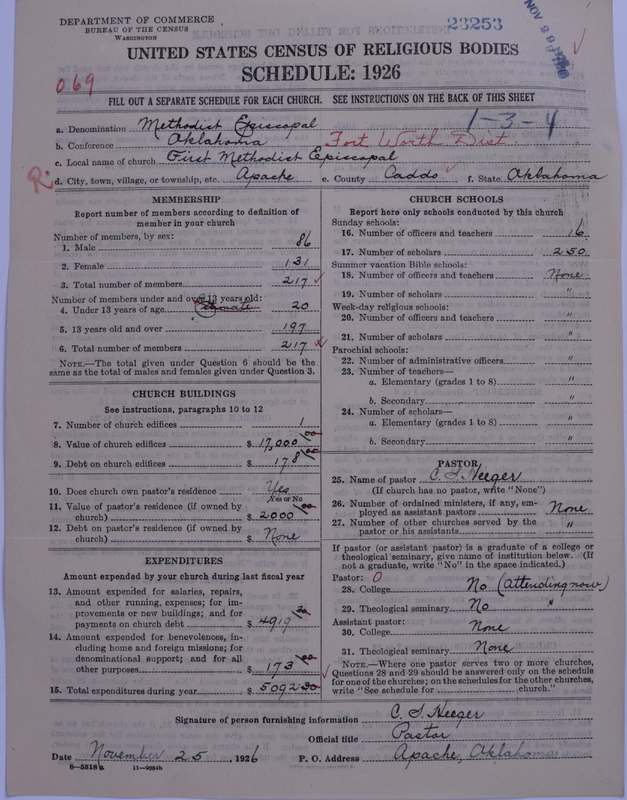 DEPARTMENT OF COMMERCE
BUREAU OF THE CENSUS
WASHINGTON
23253
UNITED STATES CENSUS OF RELIGIOUS BODIES
SCHEDULE: 1926
069
FILL OUT A SEPARATE SCHEDULE FOR EACH CHURCH. SEE INSTRUCTIONS ON THE BACK OF THIS SHEET
1-3-4
a. Denomination Methodist Episcopal
b. Conference Oklahoma Fort Worth Dist
c. Local name of church First Methodist Episcopal
R. d. City, town, village, or township, etc. Apache e. County Caddo f. State Oklahoma
MEMBERSHIP
Report number of members according to definition of
member in your church
Number of members, by sex:
1. Male 86
2. Female 131
3. Total number of members 217
Number of members under and over 13 years old:
4. Under 13 years of age 20
5. 13 years old and over 197
6. Total number of members 217
NOTE.—The total given under Question 6 should be
same as the total of males and females given under Question 3.
CHURCH BUILDINGS
See instructions, paragraphs 10 to 12
7. Number of church edifices 1
8. Value of church edifices $ 17,000 00
9. Debt on church edifices $ 178 00
10. Does church own pastor's residence Yes
Yes or No
11. Value of pastor's residence (if owned by
church) $ 2000 00
12. Debt on pastor's residence (if owned by
church) $ None
EXPENDITURES
Amount expended by your church during last fiscal year
13. Amount expended for salaries, repairs,
and other running, expenses; for im-
provements or new buildings; and for
payments on church debt $ 4919 30
14. Amount expended for benevolences, in-
cluding home and foreign missions; for
denominational support; and for all
other purposes $ 173 00
15. Total expenditures during year $ 5092 30
CHURCH SCHOOLS
Report here only schools conducted by this church
Sunday schools:
16. Number of officers and teachers 16
17. Number of scholars 250
Summer vacation Bible schools:
18. Number of officers and teachers None
19. Number of scholars "
Week-day religious schools:
20. Number of officers and teachers "
21. Number of scholars "
Parochial schools:
22. Number of administrative officers "
23. Number of teachers—
a. Elementary (grades 1 to 8) "
b. Secondary "
24. Number of scholars—
a. Elementary (grades 1 to 8) "
b. Secondary "
PASTOR
25. Name of pastor C. S. Neeger
(If church has no pastor, write "None")
26. Number of ordained ministers, if any, em-
ployed as assistant pastors None
27. Number of other churches served by the
pastor or his assistants "
If pastor (or assistant pastor) is a graduate of a college or
theological seminary, give name of institution below. (If
not a graduate, write "No" in the space indicated.)
Pastor: 0
28. College No (attending now)
29. Theological seminary No "
Assistant pastor:
30. College None
31. Theological seminary None
NOTE.—Where one pastor serves two or more churches,
Questions 28 and 29 should be answered only on the schedule
for one of the churches; on the schedules for the other churches,
write "See schedule for church."
Signature of person furnishing information C. S. Neeger
Official title Pastor
Date November 25, 1926 P. O. Address Apache, Oklahoma
8—5518a 11—9054b